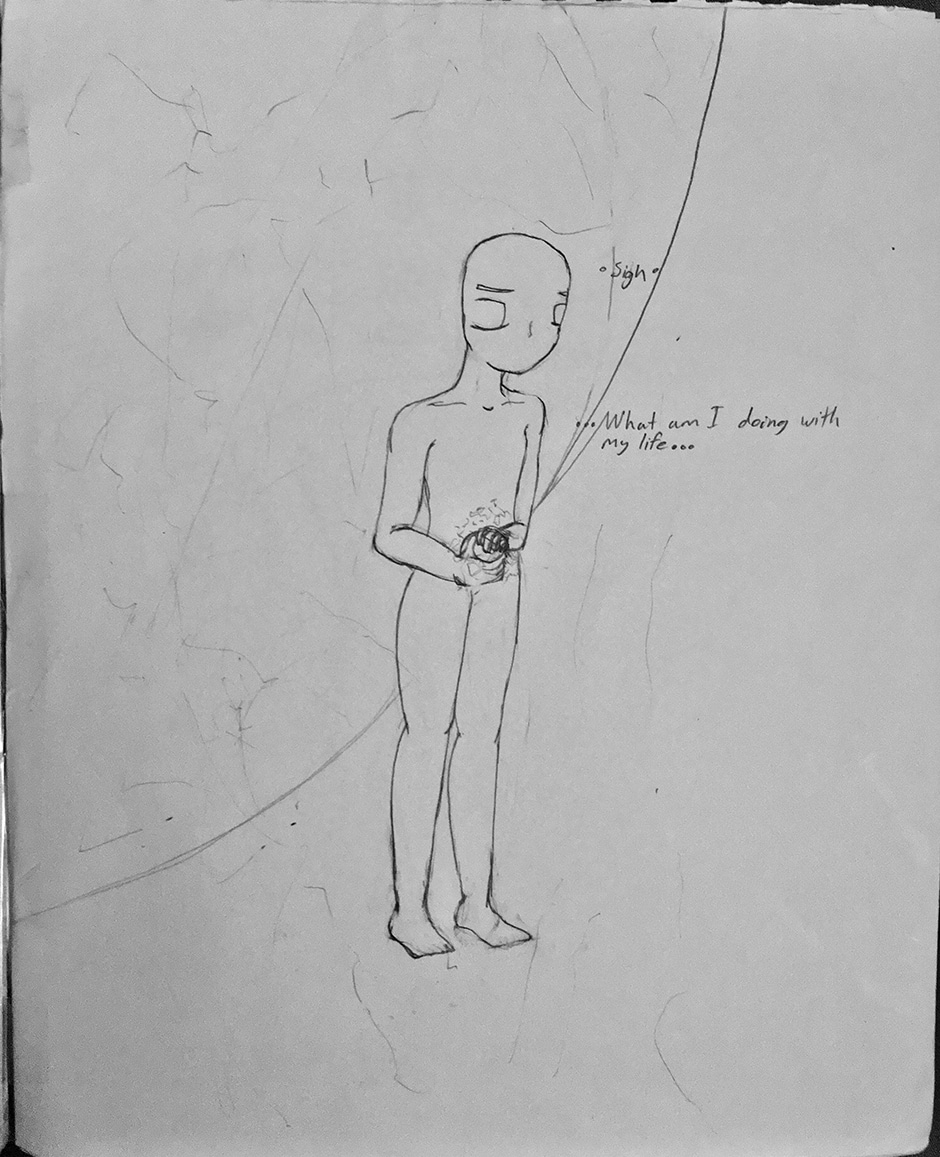 °Sigh°
...What am I doing with
my life...